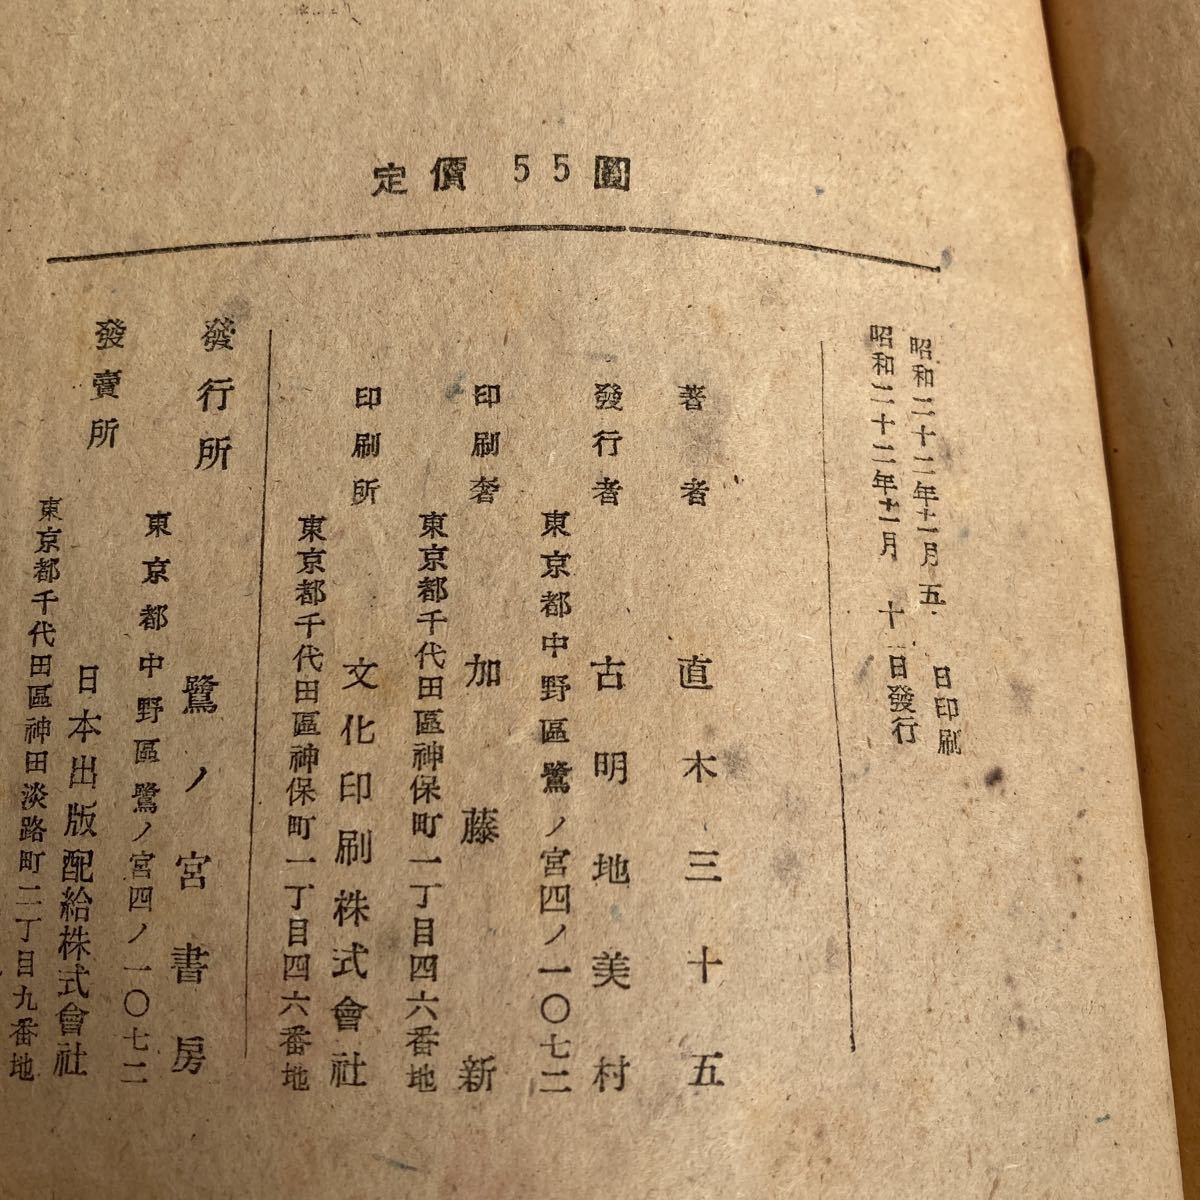 定價 55圓
昭和二十二年十一月五日印刷
昭和二十二年十一月十日發行
著者 直木三十五
發行者 古明地美村
東京都中野區鷺ノ宮四ノ一〇七二
印刷者 加藤新
東京都千代田區神保町一丁目四六番地
印刷所 文化印刷株式會社
東京都千代田區神保町一丁目四六番地
發行所 鷺ノ宮書房
東京都中野區鷺ノ宮四ノ一〇七二
發賣所 日本出版配給株式會社
東京都千代田區神田淡路町二丁目九番地